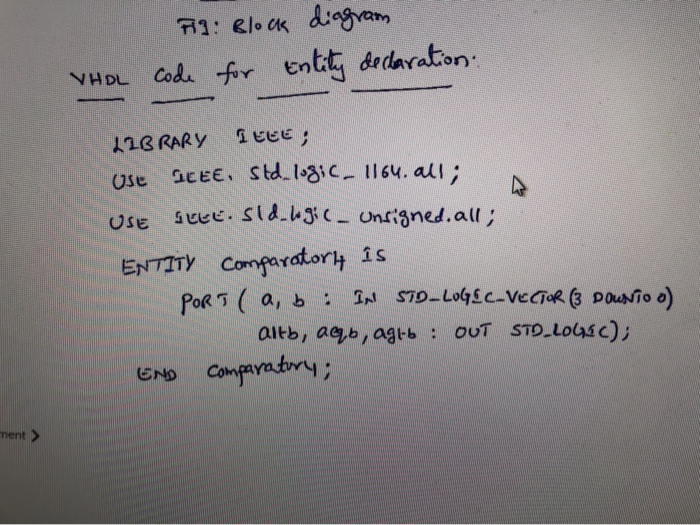 Fig: Block diagram
VHDL Code for Entity declaration.
LIBRARY IEEE;
USE IEEE. Std_logic_1164.all;
USE IEEE. Std_logic_unsigned.all;
ENTITY Comparator4 is
PORT ( a, b : IN STD_LOGIC_VECTOR (3 DOWNTO 0)
altb, aeqb, agtb : OUT STD_LOGIC);
END Comparator4;
ment >